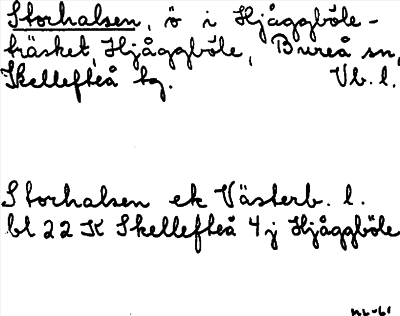 Storhalsen, ö i Hjåggböle-
träsket, Hjåggböle, Bureå sn,
Skellefteå tg. Vb. l.
Storhalsen ek Västerb. l.
bl 22 K Skellefteå 4 j Hjåggböle